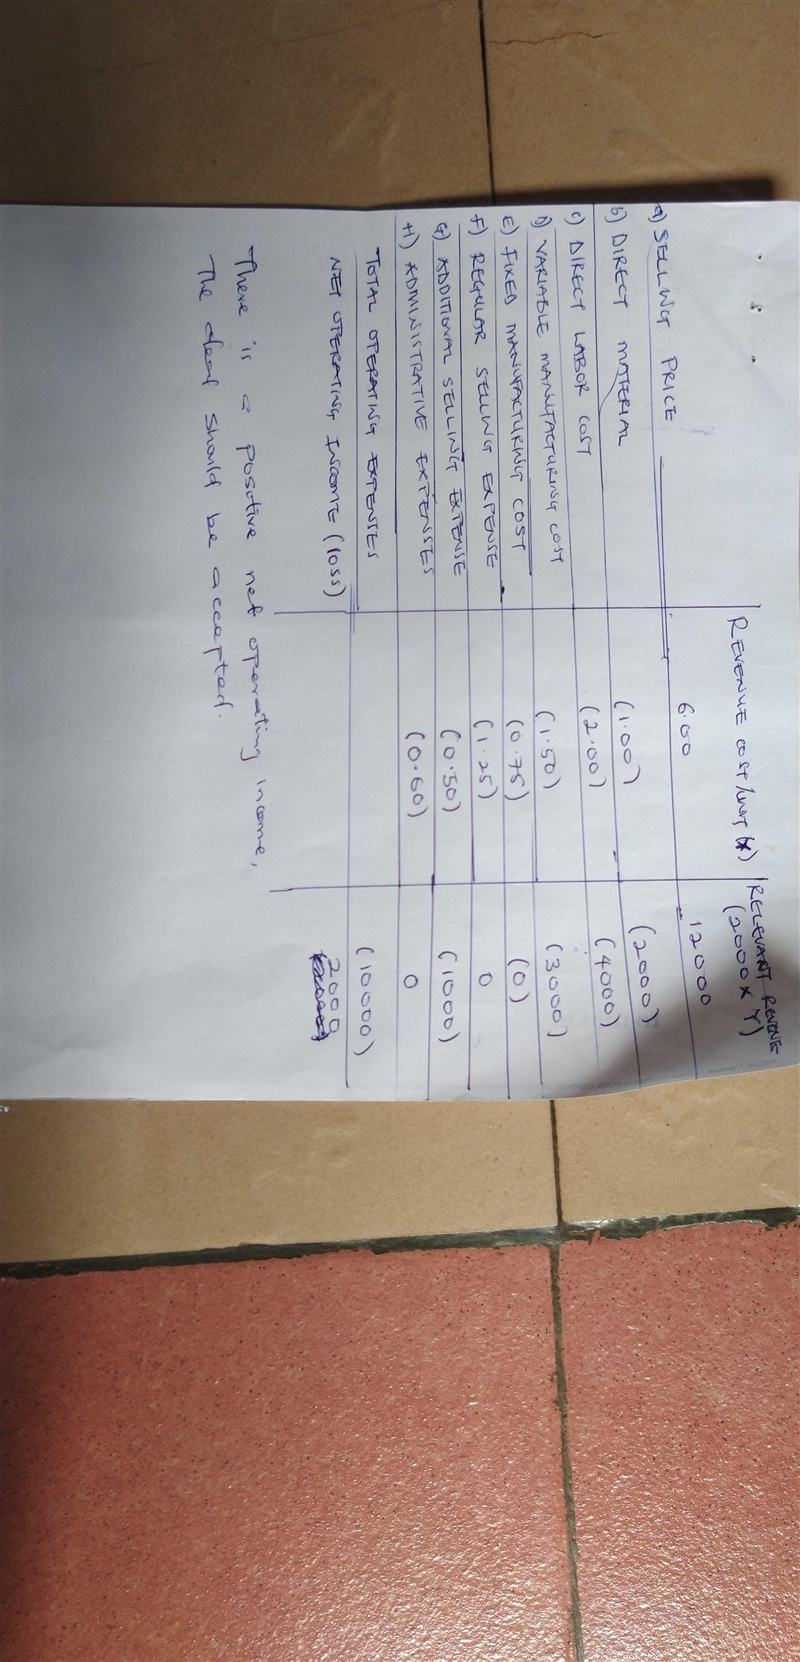 REVENUE COST/UNIT (X) RELEVANT REVENUE
(2000 X Y)
a) SELLING PRICE 6.00 12000
b) DIRECT MATERIAL (1.00) (2000)
c) DIRECT LABOR COST (2.00) (4000)
D) VARIABLE MANUFACTURING COST (1.50) (3000)
E) FIXED MANUFACTURING COST (0.75) (0)
F) REGULAR SELLING EXPENSE (1.25) 0
G) ADDITIONAL SELLING EXPENSE (0.50) (1000)
H) ADMINISTRATIVE EXPENSES (0.60) 0
TOTAL OPERATING EXPENSES (10000)
NET OPERATING INCOME (loss) 2000
There is a positive net operating income,
The deal should be accepted.